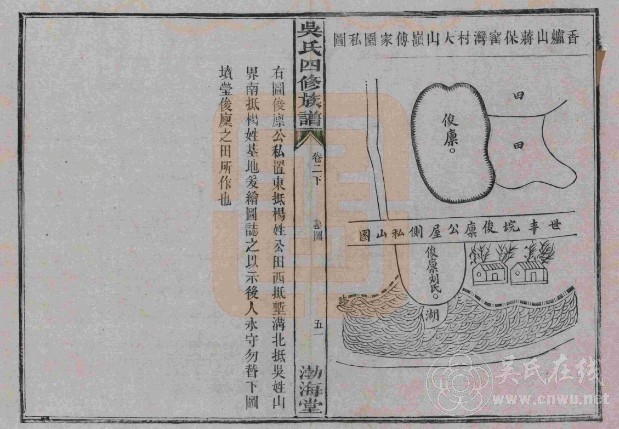 香爐山蔣保窰灣村大山嶺傅家園私圖
田
田
俊廪。
世事垸俊廪公屋側私山圖
俊廪刘氏。
湖
吳氏四修族譜
卷二下
五一
渤海堂
右圖俊廪公私置東抵楊姓公田西抵塹溝北抵吳姓山
界南抵楊姓基地爰繪圖誌之以示後人永守勿替下圖
墳塋俊廪之田所作也
吴氏在线
www.cnwu.net